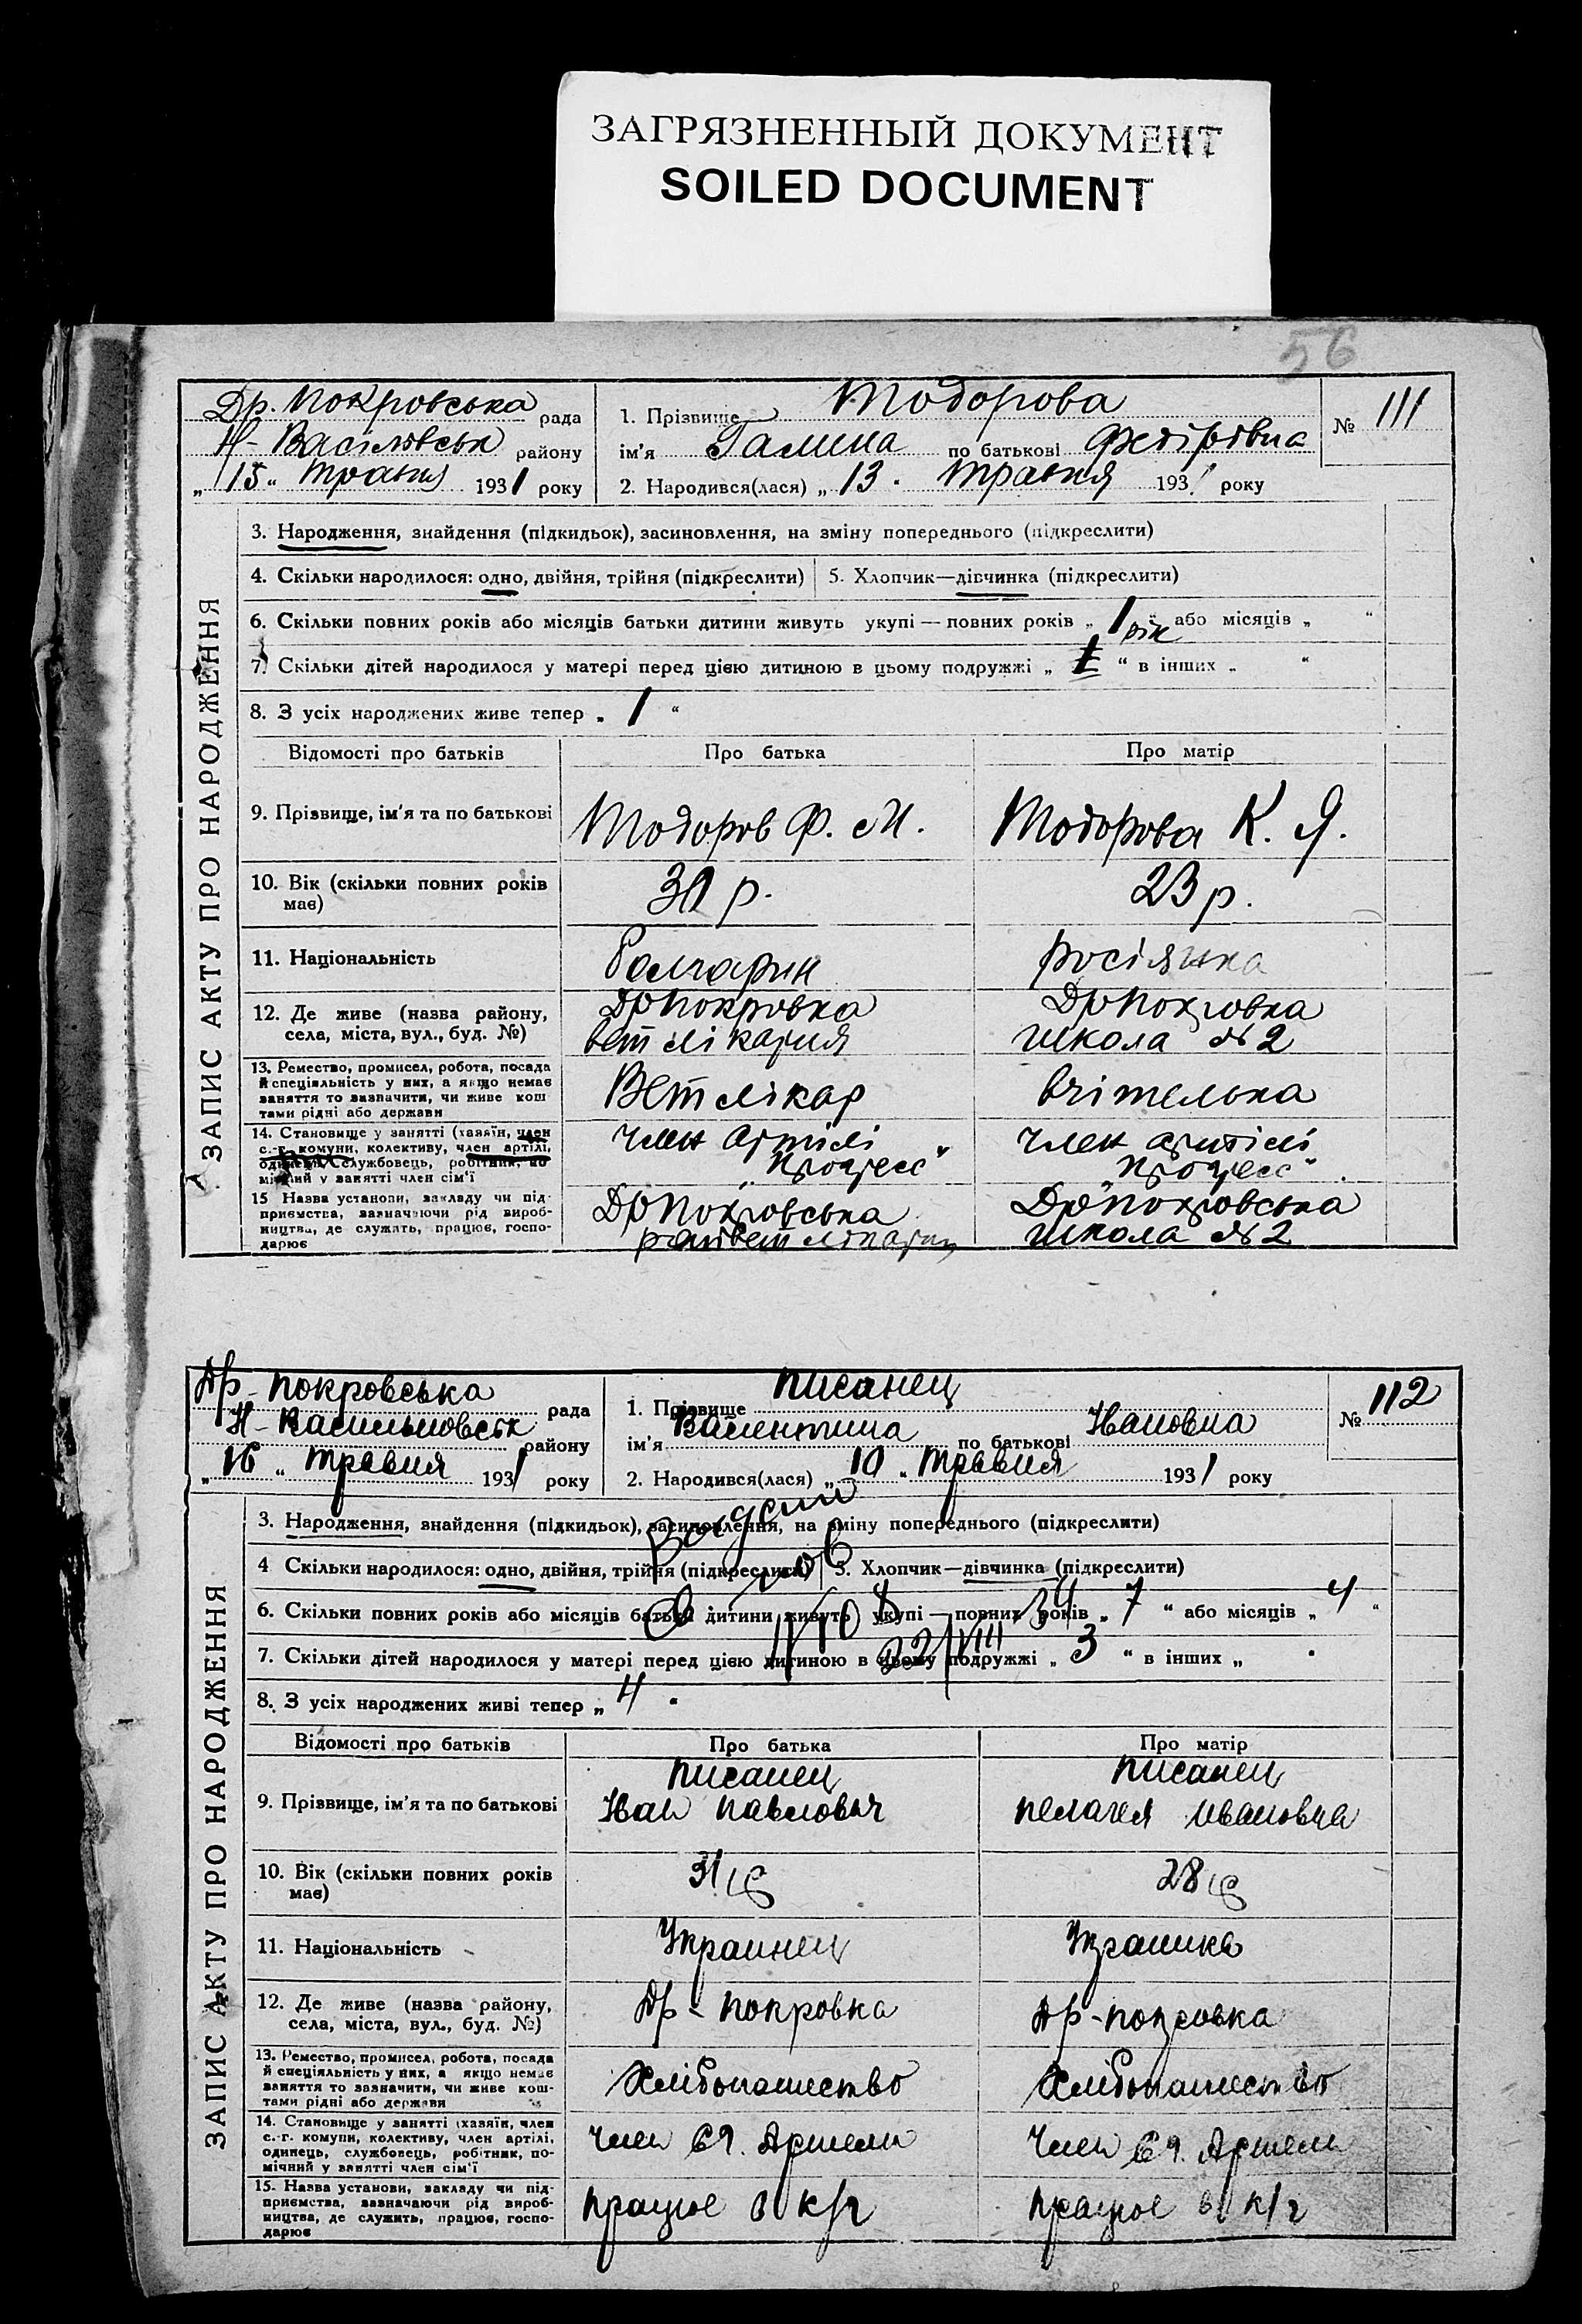 ЗАГРЯЗНЕННЫЙ ДОКУМЕНТ
SOILED DOCUMENT
56
Др. Покровська рада
Н-Васілівськ району
„15“ Травня 1931 року
1. Прізвище Тодорова
ім'я Галина по батькові Федірівна
2. Народився(лася) „13. травня 1931 року
№ 111
ЗАПИС АКТУ ПРО НАРОДЖЕННЯ
3. Народження, знайдення (підкидьок), засиновлення, на зміну попереднього (підкреслити)
4. Скільки народилося: одно, двійня, трійня (підкреслити) 5. Хлопчик—дівчинка (підкреслити)
6. Скільки повних років або місяців батьки дитини живуть укупі — повних років „ 1 рік або місяців „ “
7. Скільки дітей народилося у матері перед цією дитиною в цьому подружжі „ 1 “ в інших „ “
8. З усіх народжених живе тепер „ 1 “
Відомості про батьків Про батька Про матір
9. Прізвище, ім'я та по батькові Тодоров Ф. М. Тодорова К. Я.
10. Вік (скільки повних років має) 30 р. 23 р.
11. Національність Болгарин росіянка
12. Де живе (назва району, ДрПокровка ДрПокровка
села, міста, вул., буд. №) вет лікарня школа №2
13. Ремество, промисел, робота, посада
й спеціяльність у них, а якщо немає
заняття то зазначити, чи живе кош
тами рідні або держави
Ветлікар вчітелька
14. Становище у занятті (хазяїн, член
с.-г. комуни, колективу, член артілі,
одинець, службовець, робітник, по
мічний у занятті член сім'ї
член артілі член артілі
„Прогресс“ „Прогресс“
15 Назва установи, закладу чи під-
приємства, зазначаючи рід вироб-
ництва, де служить, працює, госпо-
дарює
ДрПокровська ДрПокровська
школа №2
Др-Покровська рада
Н-Васильновськ району
„16“ травня 1931 року
1. Прізвище Писанец
ім'я Валентина по батькові Ивановна
2. Народився(лася) „10„ Травня 1931 року
№ 112
ЗАПИС АКТУ ПРО НАРОДЖЕННЯ
3. Народження, знайдення (підкидьок), засиновлення, на зміну попереднього (підкреслити)
4 Скільки народилося: одно, двійня, трійня (підкреслити) 5. Хлопчик—дівчинка (підкреслити)
6. Скільки повних років або місяців батьки дитини живуть укупі — повних років „ 7 “ або місяців „ 4 “
7. Скільки дітей народилося у матері перед цією дитиною в цьому подружжі „ 3 “ в інших „
22/VIII
8. З усіх народжених живі тепер „ 4
Відомості про батьків Про батька Про матір
Писанец Писанец
9. Прізвище, ім'я та по батькові Иван Павлович Пелагея Ивановна
10. Вік (скільки повних років має) 31 28
11. Національність Украинец Украинка
12. Де живе (назва району, села, міста, вул., буд. №) Др-Покровка Др-Покровка
13. Ремество, промисел, робота, посада
й спеціяльність у них, а якщо немає
заняття то зазначити, чи живе кош-
тами рідні або держави
Хлибопашество Хлибопашество
14. Становище у занятті (хазяїн, член
с.-г. комуни, колективу, член артілі,
одинець, службовець, робітник, по-
мічний у занятті член сім'ї
Член Артели Член Артели
15. Назва установи, закладу чи під-
приємства, зазначаючи рід вироб-
ництва, де служить, працює, госпо-
дарює
працює в к/г працює в к/г